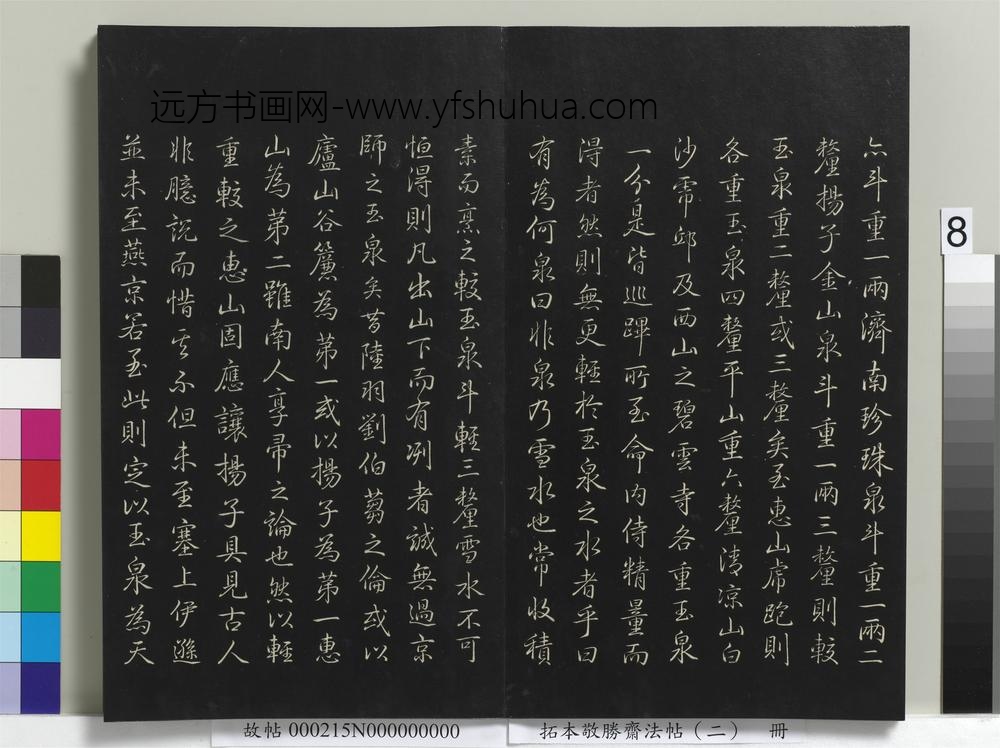 远方书画网-www.yfshuhua.com
六斗重一兩濟南珍珠泉斗重一兩二
釐揚子金山泉斗重一兩三釐則較
玉泉重二釐或三釐矣至惠山虎跑則
各重玉泉四釐平山重六釐清凉山白
沙虎邱及西山之碧雲寺各重玉泉
一分是皆巡蹕所至命內侍精量而
得者然則無更輕於玉泉之水者乎曰
有為何泉曰非泉乃雪水也常收積
素而烹之較玉泉斗輕三釐雪水不可
恒得則凡出山下而有冽者誠無過京
師之玉泉矣昔陸羽劉伯芻之倫或以
廬山谷簾為第一或以揚子為第一惠
山為第二雖南人享帚之論也然以輕
重較之惠山固應讓揚子具見古人
非臆說而惜其不但未至塞上伊遜
並未至燕京若至此則定以玉泉為天
8
故帖 000215N000000000
拓本敬勝齋法帖（二） 冊